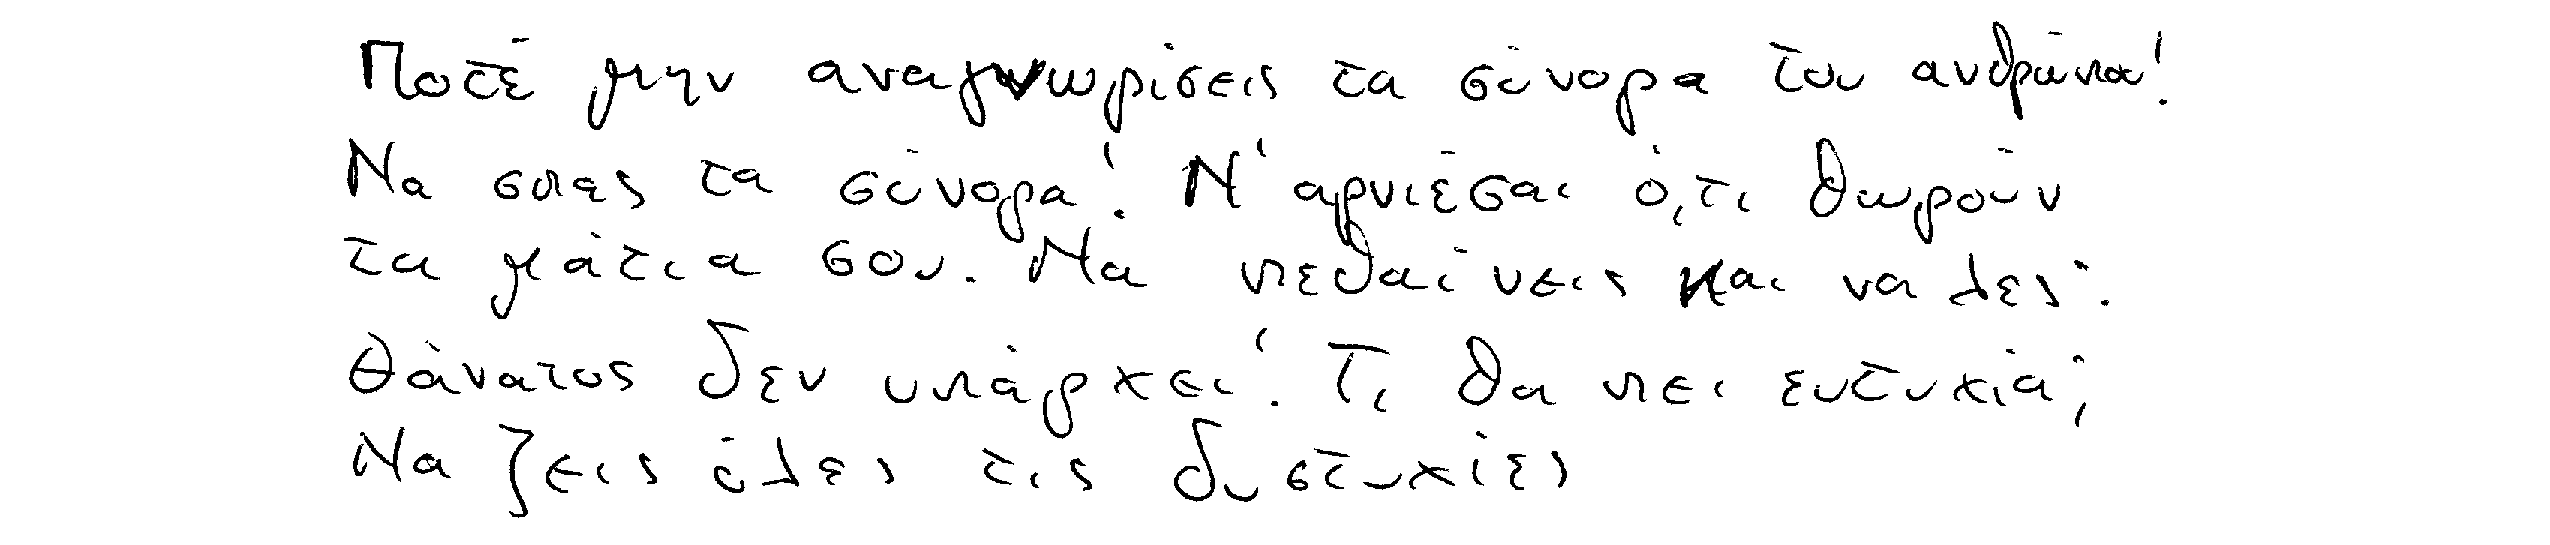 Ποτέ μην αναγνωρίσεις τα σύνορα του ανθρώπου!
Να σπας τα σύνορα! Ν' αρνιέσαι ό,τι θωρούν
τα μάτια σου. Να πεθαίνεις και να λες:
Θάνατος δεν υπάρχει! Τι θα πει ευτυχία;
Να ζεις όλες τις δυστυχίες